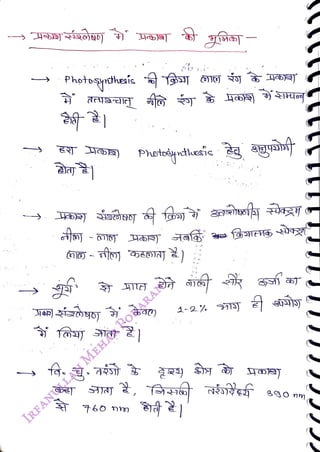 → प्रकाश संश्लेषण में प्रकाश की भूमिका -
→ Photosynthesis की क्रिया लाल रंग के प्रकाश
में तत्पश्चात् नीले रंग के प्रकाश में सम्पन्न
होती है।
→ हरा प्रकाश Photosynthesis हेतु अनुपयोगी
होता है।
→ प्रकाश संश्लेषण की क्रिया में अवशोषणीय स्पेक्ट्रम
नीला - लाल प्रकाश जबकि क्रियात्मक स्पेक्ट्रम
लाल - नीला कहलाता है।
→ सूर्य से प्राप्त होने वाली सौर ऊर्जा का
प्रकाश संश्लेषण में केवल 1-2% भाग ही उपयोग
में लिया जाता है।
→ वि. चु. तरंगों के दृश्य क्षेत्र को प्रकाश
कहा जाता है, जिसकी तरंगदैर्ध्य 390 nm
से 760 nm होती है।
IRFANULLAH MEHAR